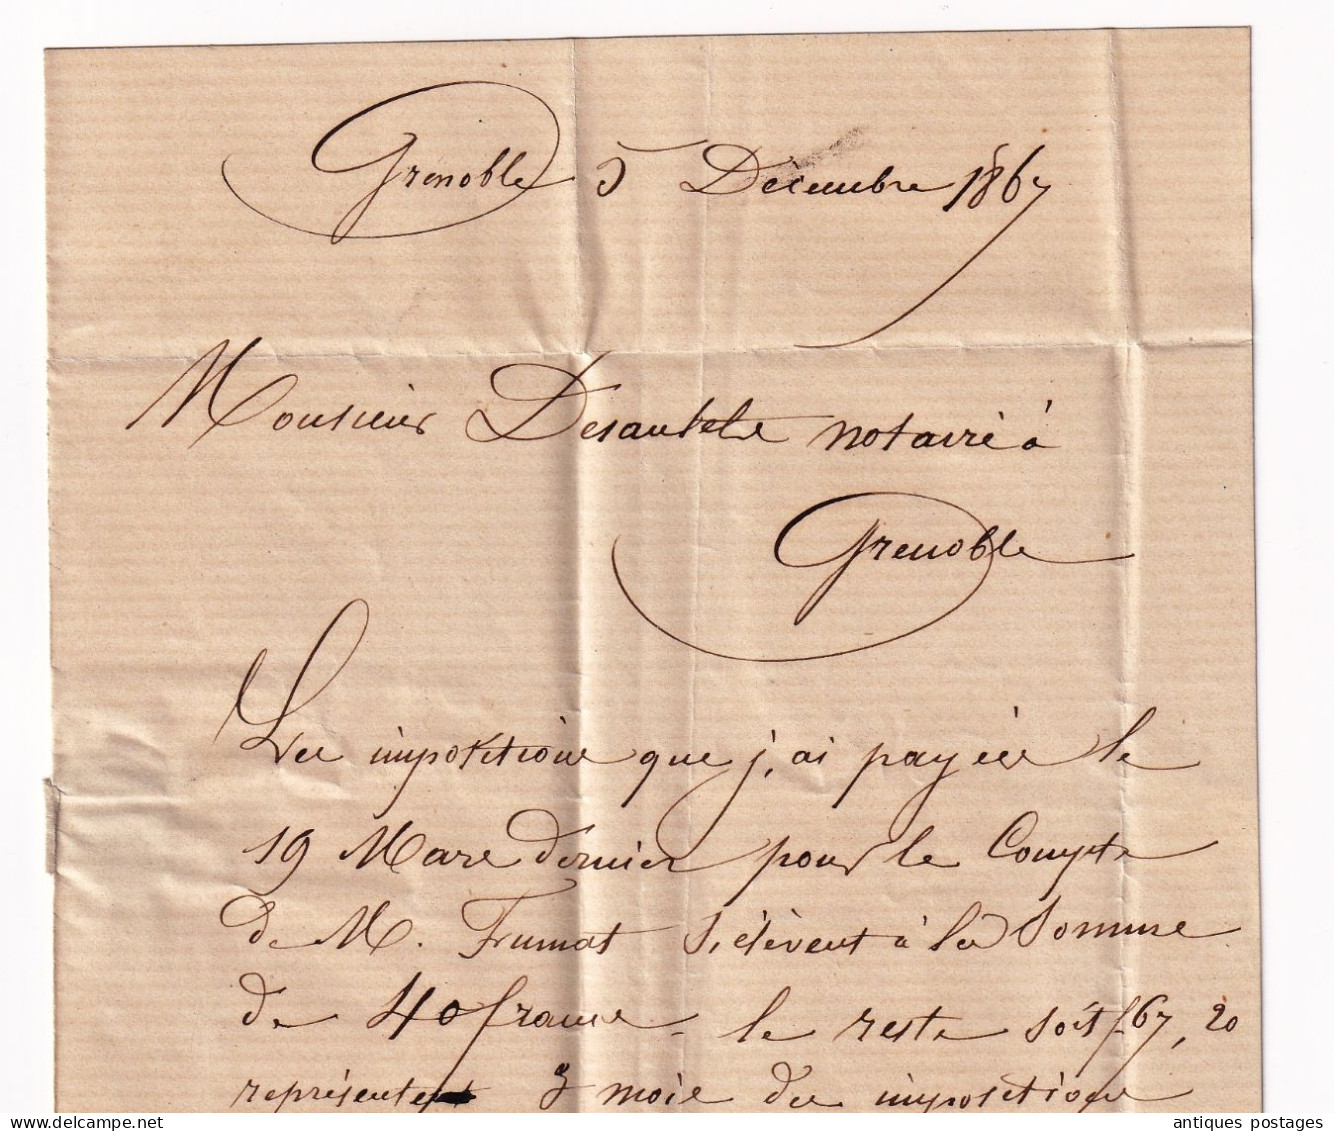 Grenoble 5 Décembre 1867
Monsieur Desautels notaire à
Grenoble
Les impositions que j,ai payées le
19 Mars dernier pour le Compte
de M. Frumat s,élèvent à la Somme
de 40 francs. le reste soit f 67, 20
représentent 3 mois des impositions
antiques postages